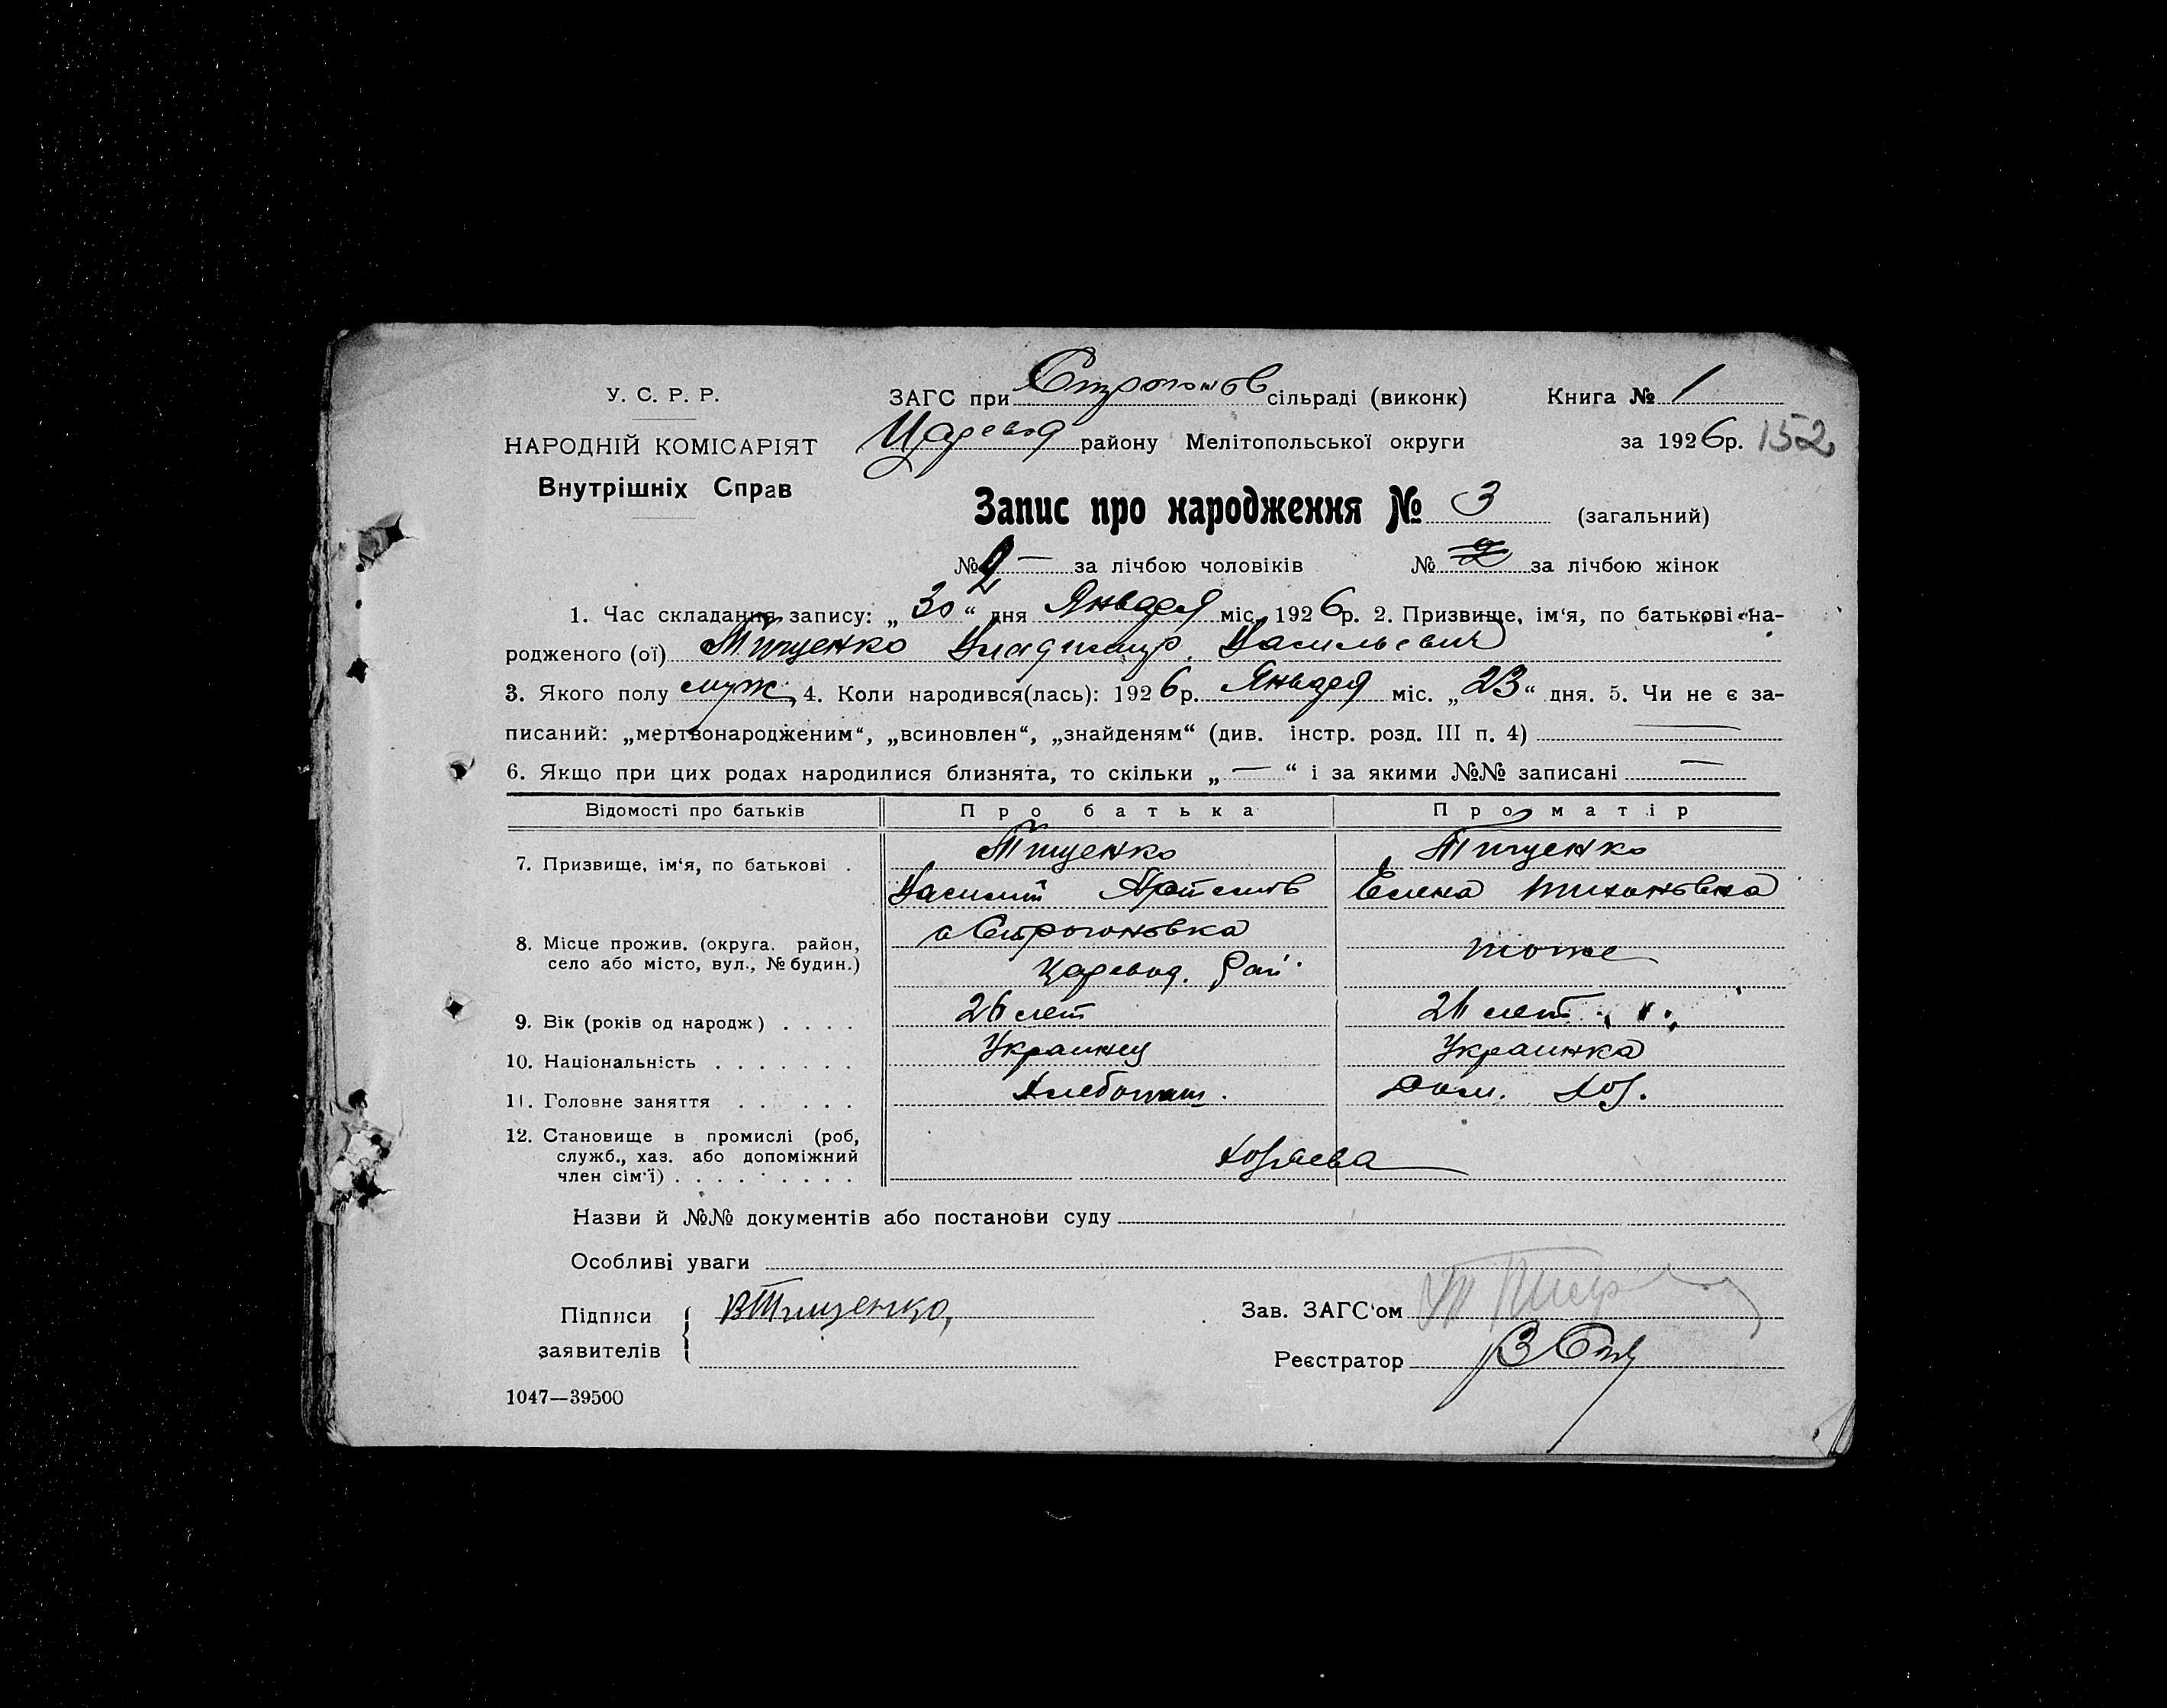 У. С. Р. Р.
НАРОДНІЙ КОМІСАРІЯТ
Внутрішніх Справ
ЗАГС при Строгонов сільраді (виконк) Книга № 1
Царевод району Мелітопольської округи за 1926р. 152
Запис про народження № 3 (загальний)
№ 2 — за лічбою чоловіків № 2 за лічбою жінок
1. Час складання запису: „ 30 “ дня Января міс. 1926р. 2. Призвище, ім‘я, по батькові на-
родженого (ої) Тищенко Владимир Васильевич
3. Якого полу муж, 4. Коли народився(лась): 1926р. Января міс. „ 23 “ дня. 5. Чи не є за-
писаний: „мертвонародженим“, „всиновлен“, „знайденям“ (див. інстр. розд. III п. 4) —
6. Якщо при цих родах народилися близнята, то скільки „ — “ і за якими №№ записані —
Відомості про батьків Про батька Про матір
7. Призвище, ім‘я, по батькові . Тищенко Тищенко
Василий Артемов Елена Тихоновна
8. Місце прожив. (округа, район, село або місто, вул., № будин.) с Строгоновка тоже
Царевод. Рай.
9. Вік (років од народж) . . . . 26 лет 26 лет
10. Національність . . . . . . . Украинец Украинка
11. Головне заняття . . . . . . Хлебопаш. Дом. Хоз.
12. Становище в промислі (роб, служб., хаз. або допоміжний член сім‘ї) . . . . . . . . . Хозяева
Назви й №№ документів або постанови суду
Особливі уваги
Підписи заявителів В Тищенко,
Зав. ЗАГС‘ом
Реєстратор
1047—39500